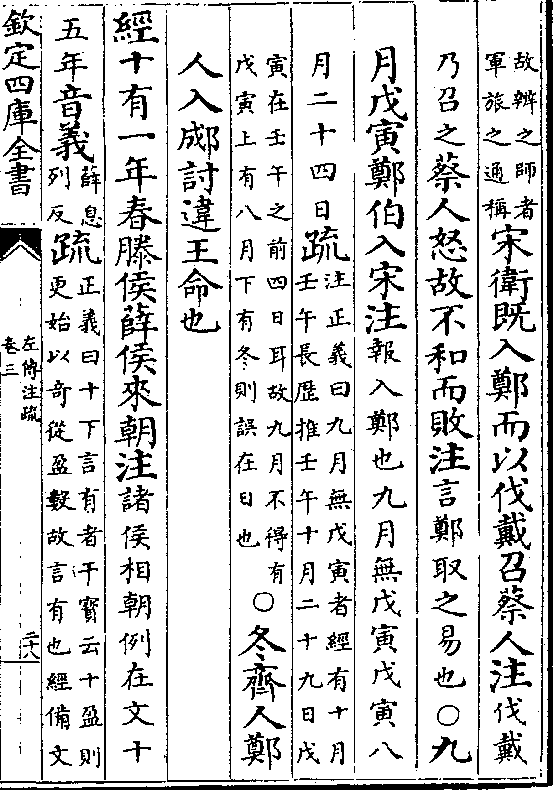 故辨之師者
軍旅之通稱
宋衛既入鄭而以伐戴召蔡人注伐戴
乃召之蔡人怒故不和而敗注言鄭取之易也○九
月戊寅鄭伯入宋注報入鄭也九月無戊寅戊寅八
月二十四日疏
注正義曰九月無戊寅者經有十月
壬午長歷推壬午十月二十九日戊
寅在壬午之前四日耳故九月不得有
戊寅上有八月下有冬則誤在日也
○冬齊人鄭
人入郕討違王命也
經十有一年春滕侯薛侯來朝注諸侯相朝例在文十
五年音義
薛息
列反
疏
正義曰十下言有者干寳云十盈則
更始以奇從盈數故言有也經備文
欽定四庫全書
左傳注疏
卷三
二十八